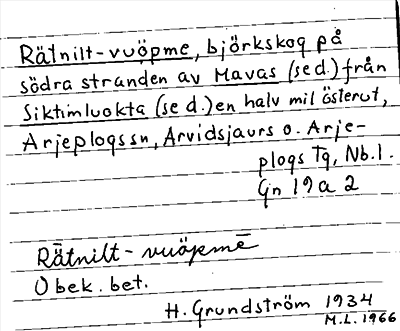 Rätnilt-vuöpme, björkskog på
södra stranden av Mavas (se d.) från
Siktimluokta (se d.) en halv mil österut,
Arjeplogs sn, Arvidsjaurs o. Arje-
plogs Tg, Nb. l.
Gn 19 a 2
Rātnilt- vuöpmē
Obek. bet.
H. Grundström 1934
M.L. 1966